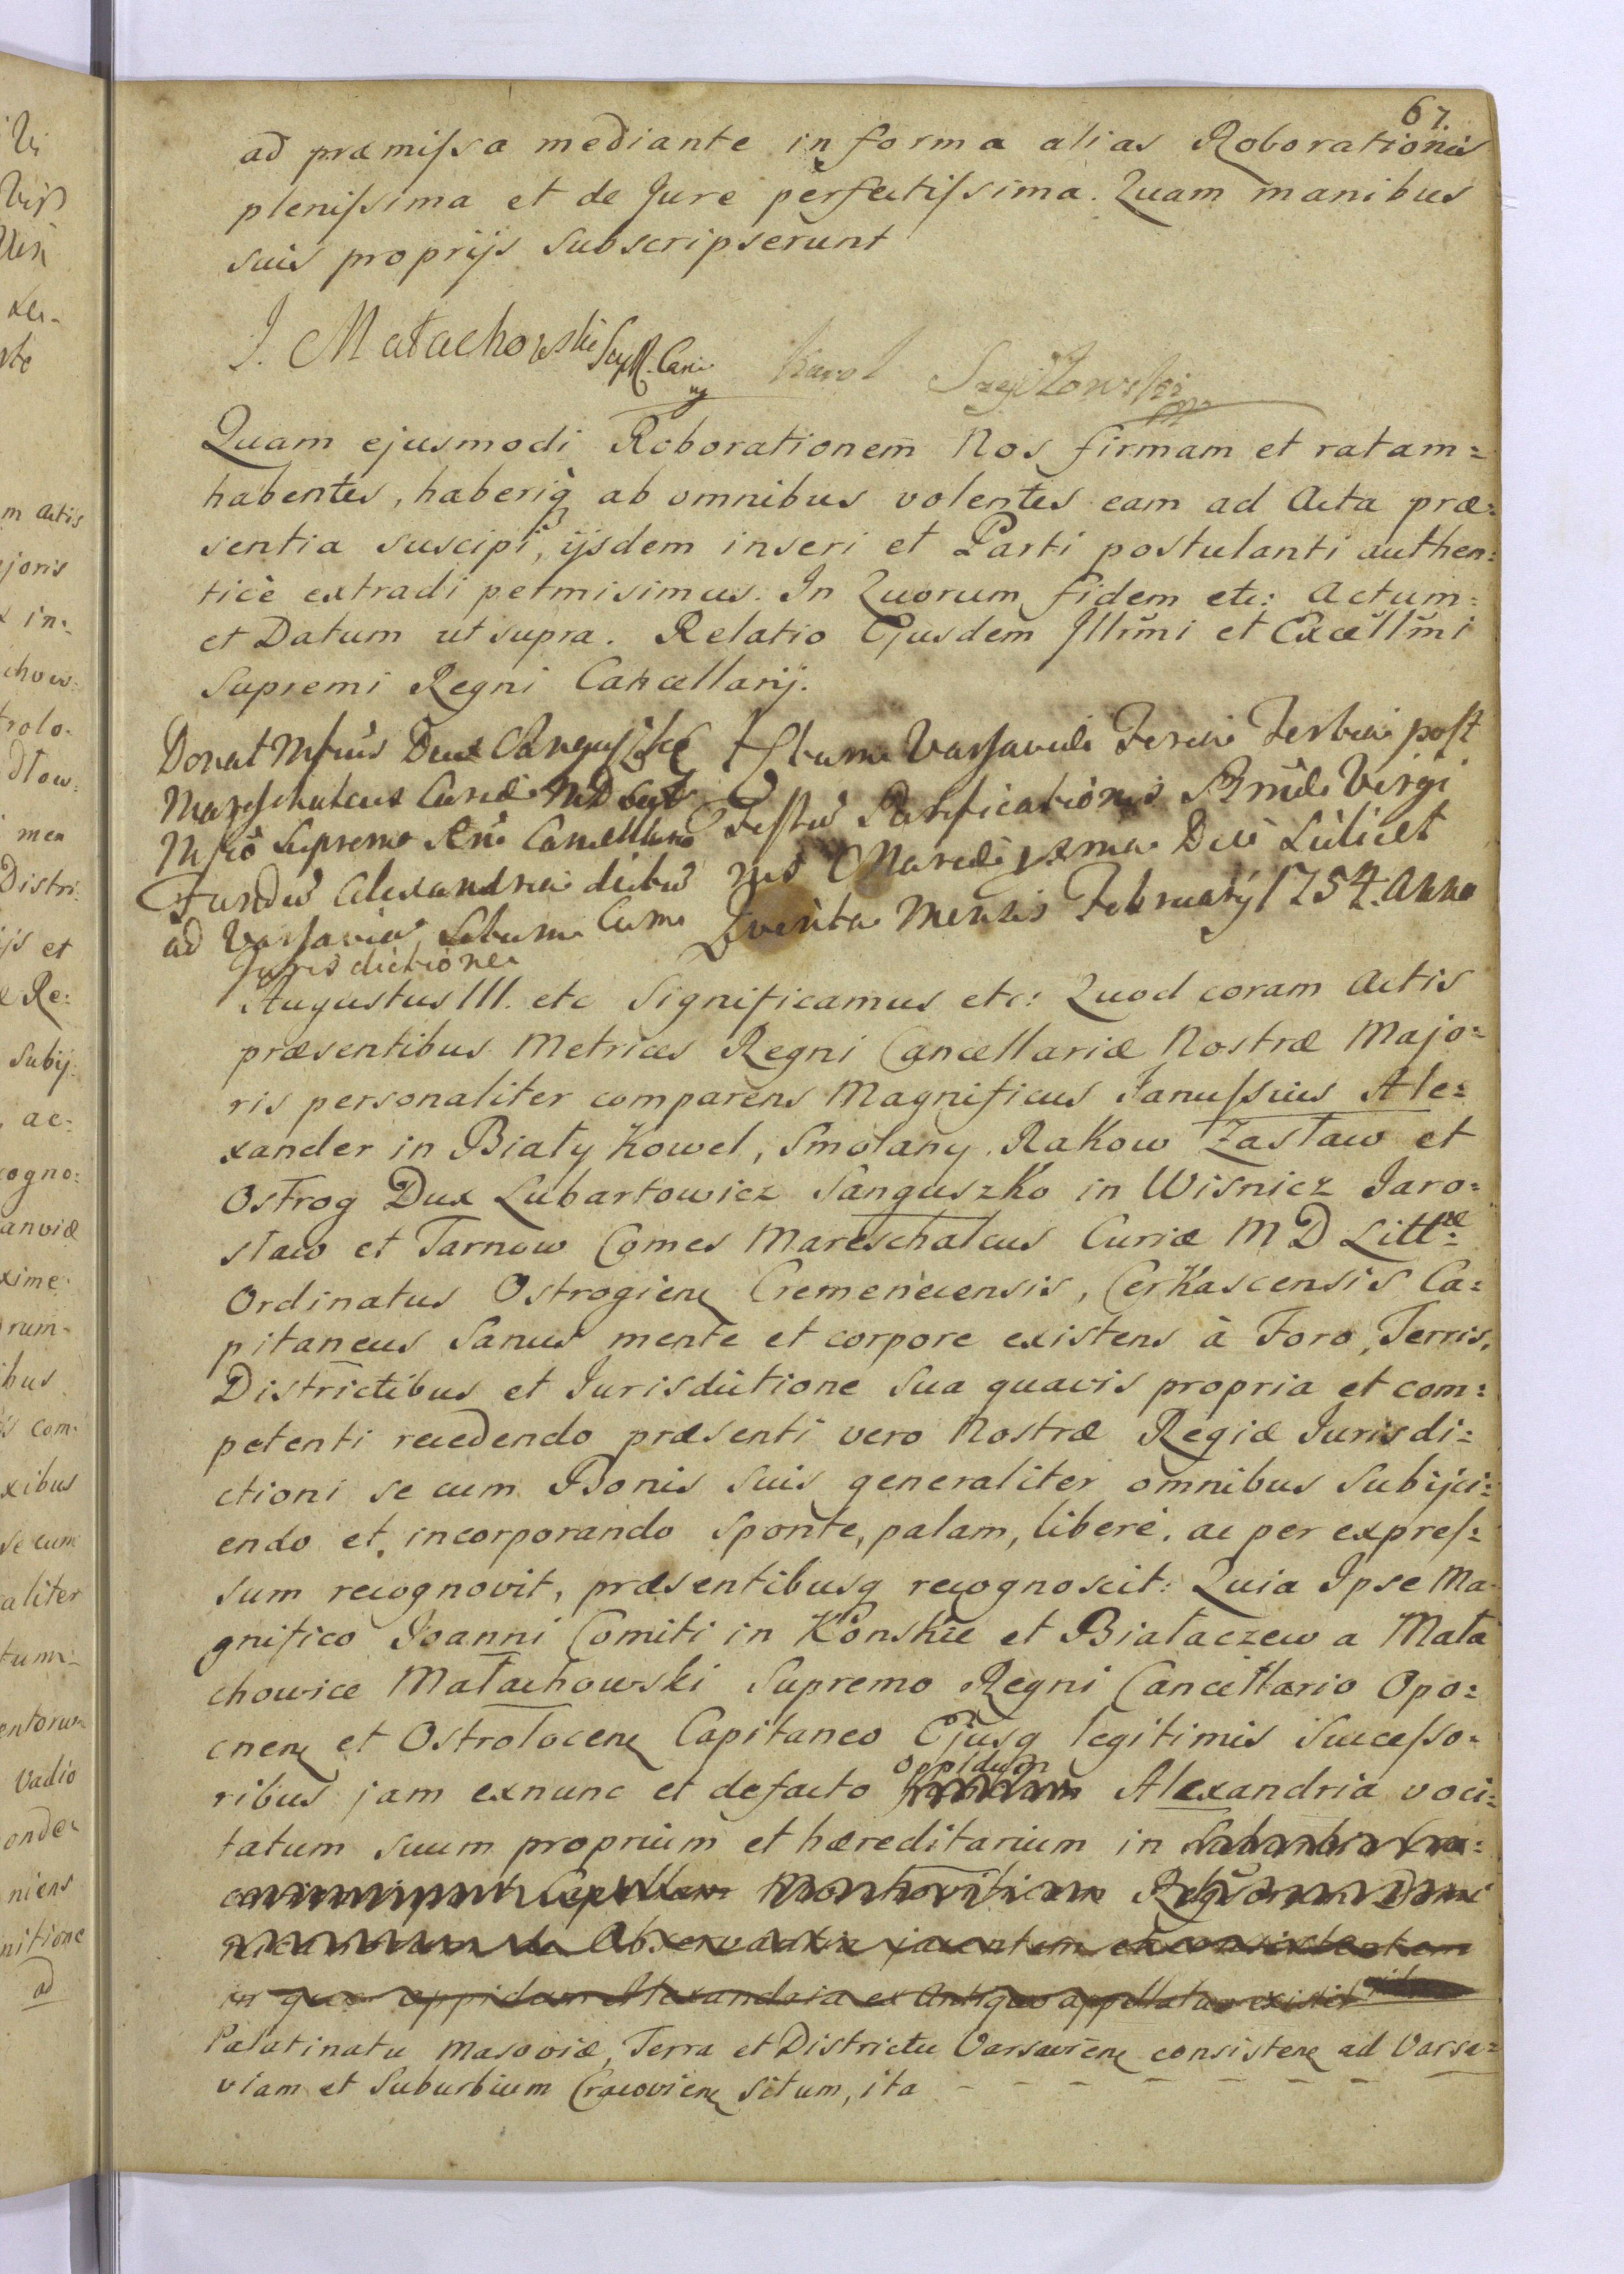 67
ad præmissa mediante in forma alias Roborationis
plenissima et de Jure perfectissima. Quam manibus
suis proprijs subscripserunt
J. Małachowski
Karol Szeptowski
Quam ejusmodi Roborationem̄ Nos firmam et ratam=
habentes, haberiq̨ ab omnibus volentes eam ad Acta præ=
sentia suscipi, ijsdem inseri et Parti postulanti authen=
ticè extradi permisimus. In Quorum fidem etc: Actum=
et Datum ut supra. Relatio Ejusdem Illmi et Excellmi
Supremi Regni Cancellarij.
Donat Mfcus Dux Sanguszko
Mareschalcus Curiæ MD Lit
Mfico Supremo Rni Cancellario
Fundū Alexandria dictū
ad Varsaviā Situm cum
Jurisdictione
Actum Varsaviæ Feria Tertia post
Festū Purificationis Bmæ Virgi
nis Mariæ proxima Die Scilicet
Quinta Mensis February 1754. Anno
Augustus III. etc Significamus etc: Quod coram Actis
præsentibus Metrices Regni Cancellariæ Nostræ Majo=
ris personaliter comparens Magnificus Janussius Ale=
xander in Biały Kowel, Smolany. Rakow Zasław et
Ostrog Dux Lubartowicz Sanguszko in Wisnicz Jaro=
sław et Tarnow Comes Mareschalcus Curiæ M D Littæ
Ordinatus Ostrogieñ Cremenecensis, Cerkascensis Ca=
pitaneus Sanus mente et corpore existens à Foro, Terris,
Districtibus et Jurisdictione sua quavis propria et com=
petenti recedendo præsenti vero Nostræ Regiæ Jurisdi=
ctioni se cum Bonis suis generaliter omnibus subijci=
endo et incorporando sponte, palam, liberè, ac per expres=
sum recognovit, præsentibusq recognoscit: Quia Ipse Ma=
gnifico Joanni Comiti in Konskie et Białaczew a Mała
chowice Małachowski Supremo Regni Cancellario Opo=
cneñ et Ostrołoceñ Capitaneo Ejusq legitimis Successo=
ribus jam exnunc et defacto oppidum Alexandria voci=
tatum suum proprium et hæreditarium in
de Observantia jacentem et consistentem
in quo oppidum Alexandria ex Antiquo appellatur existit
Palatinatu Masoviæ, Terra et Districtu Varsavieñ consisteñ ad Varsa=
viam et Suburbium Cracovieñ situm, ita